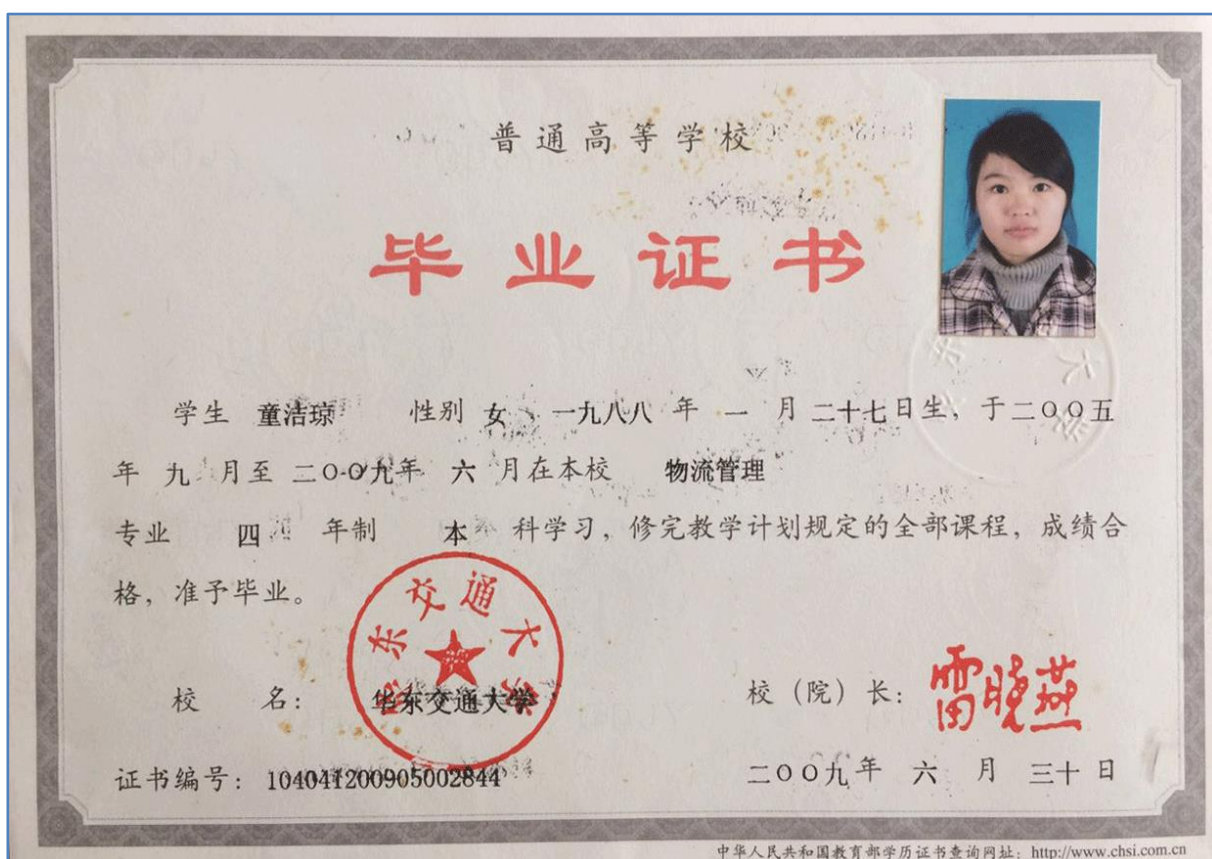 普通高等学校
毕业证书
学生 童洁琼 性别 女 一九八八 年 一 月 二十七日生，于二〇〇五
年 九 月至 二〇〇九年 六 月在本校 物流管理
专业 四 年制 本 科学习，修完教学计划规定的全部课程，成绩合
格，准予毕业。
华东交通大学
校 名： 华东交通大学
校（院）长： 雷晓燕
证书编号： 104041200905002844
二〇〇九年 六 月 三十 日
中华人民共和国教育部学历证书查询网址：http://www.chsi.com.cn